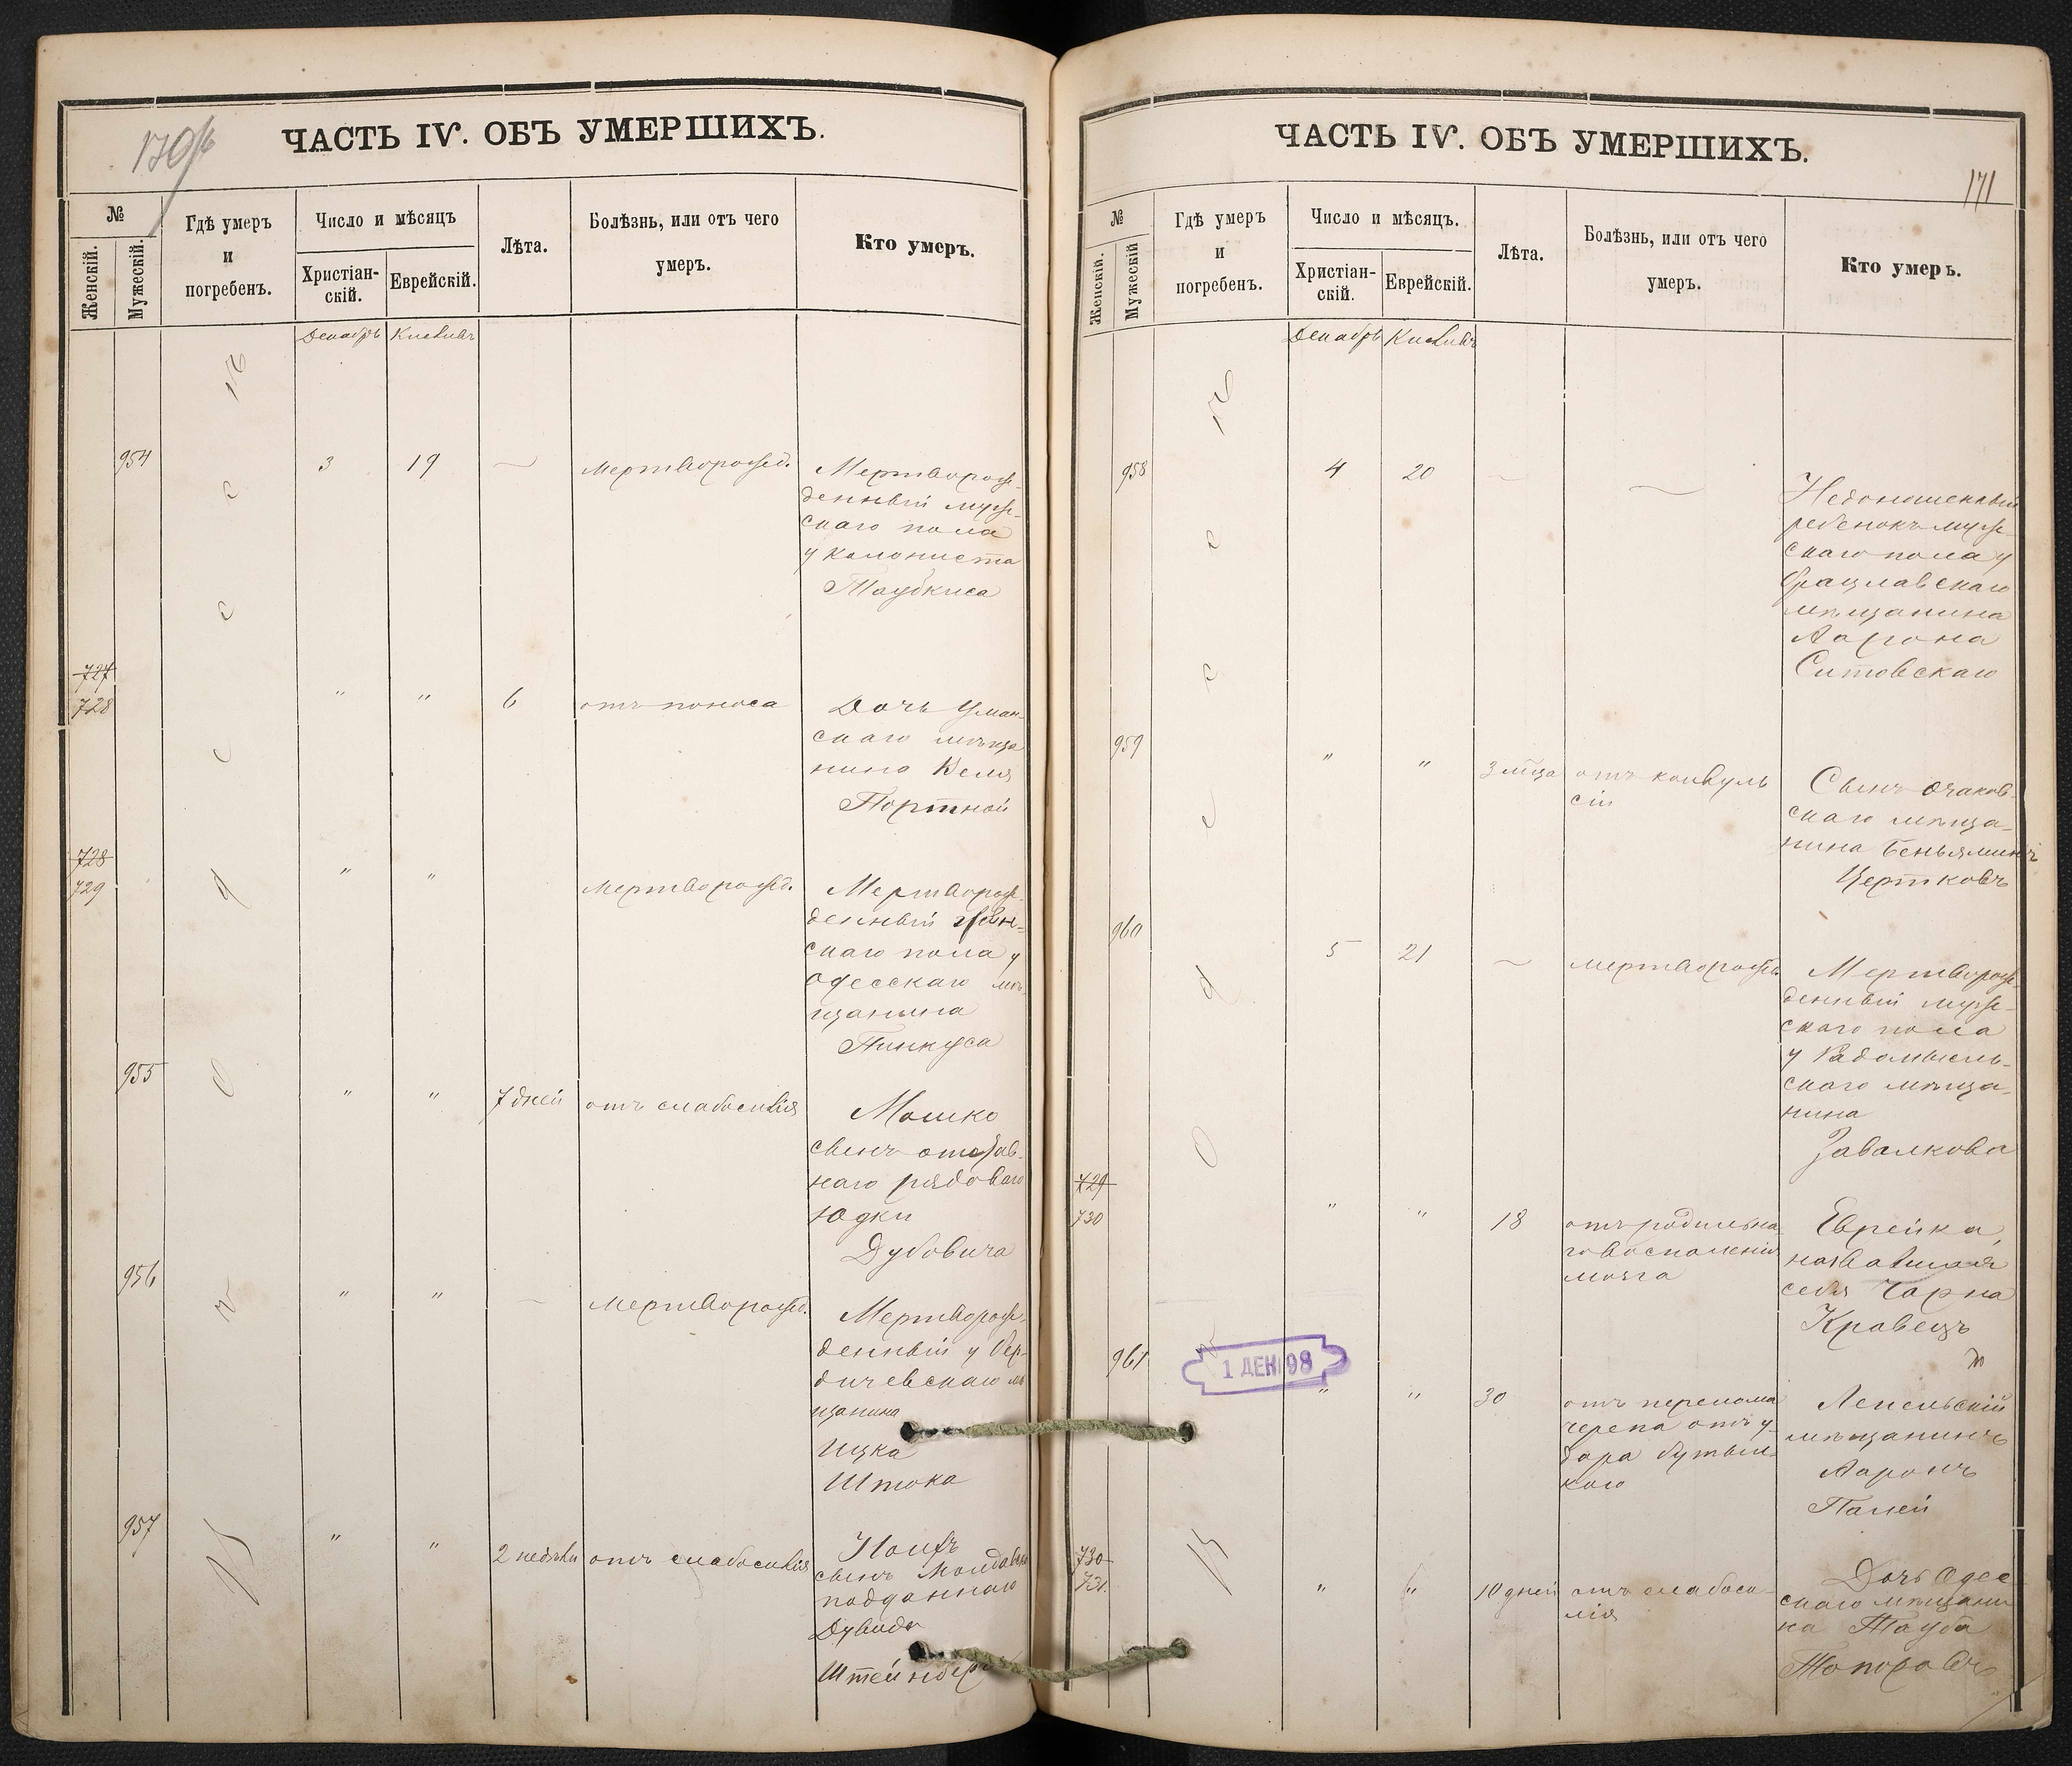 170 об
ЧАСТЬ IV. ОБЪ УМЕРШИХЪ.
№
Женскій.
Мужескій.
Гдѣ умеръ
и
погребенъ.
Число и мѣсяцъ
Христіан-
скій.
Еврейскій.
Лѣта.
Болѣзнь, или отъ чего
умеръ.
Кто умеръ.
Декабрь Кисливъ
954 3 19 — мертворожд. Мертворож-
денный муж-
скаго пола
у колониста
Таубкиса
727
728 " " 6 отъ поноса Дочь Уман-
скаго мѣща
нина Веля
Портной
728
729 " " мертворожд. Мертворож-
денный жен-
скаго пола у
Одесскаго мѣ-
щанина
Пинкуса
955 " " 7 дней отъ слабосилія Мошко
сынъ отстав-
наго рядоваго
Юдки
Дубовича
956 " " — мертворожд. Мертворож-
денный у Бер-
дичевскаго мѣ
щанина
Ицка
Штока
957 " " 2 недѣли отъ слабосилія
сынъ
подданнаго
Дувида
Штейнберг
въ Одессѣ
ЧАСТЬ IV. ОБЪ УМЕРШИХЪ.
171
№
Женскій.
Мужескій
Гдѣ умеръ
и
погребенъ.
Число и мѣсяцъ.
Христіан-
скій.
Еврейскій.
Лѣта.
Болѣзнь, или отъ чего
умеръ.
Кто умеръ.
Декабрь Кисливъ
958 4 20 — — Недоношенный
ребенокъ муж-
скаго пола у
Брацлавскаго
мѣщанина
Аарона
Ситовскаго
959 " " 3 мѣца отъ конвуль
сіи Сынъ Очаков-
скаго мѣща-
нина Беньяминъ
Чертковъ
960 5 21 — мертворожд. Мертворож-
денный муж-
скаго пола
у Радомысль-
скаго мѣща-
нина
Завалкова
729
730 " " 18 отъ родильна
го воспаленія
мозга Еврейка,
назвавшая
себя Чарна
Кравецъ
961 1 ДЕК 98
" " 30 отъ перелома
черепа отъ у-
дара бутыл-
кою Лепельскій
мѣщанинъ
Ааронъ
Палей
730
731. " " 10 дней отъ слабоси-
лія Дочь Одес
скаго мѣщани
на Тауба
Топоровъ
въ Одессѣ